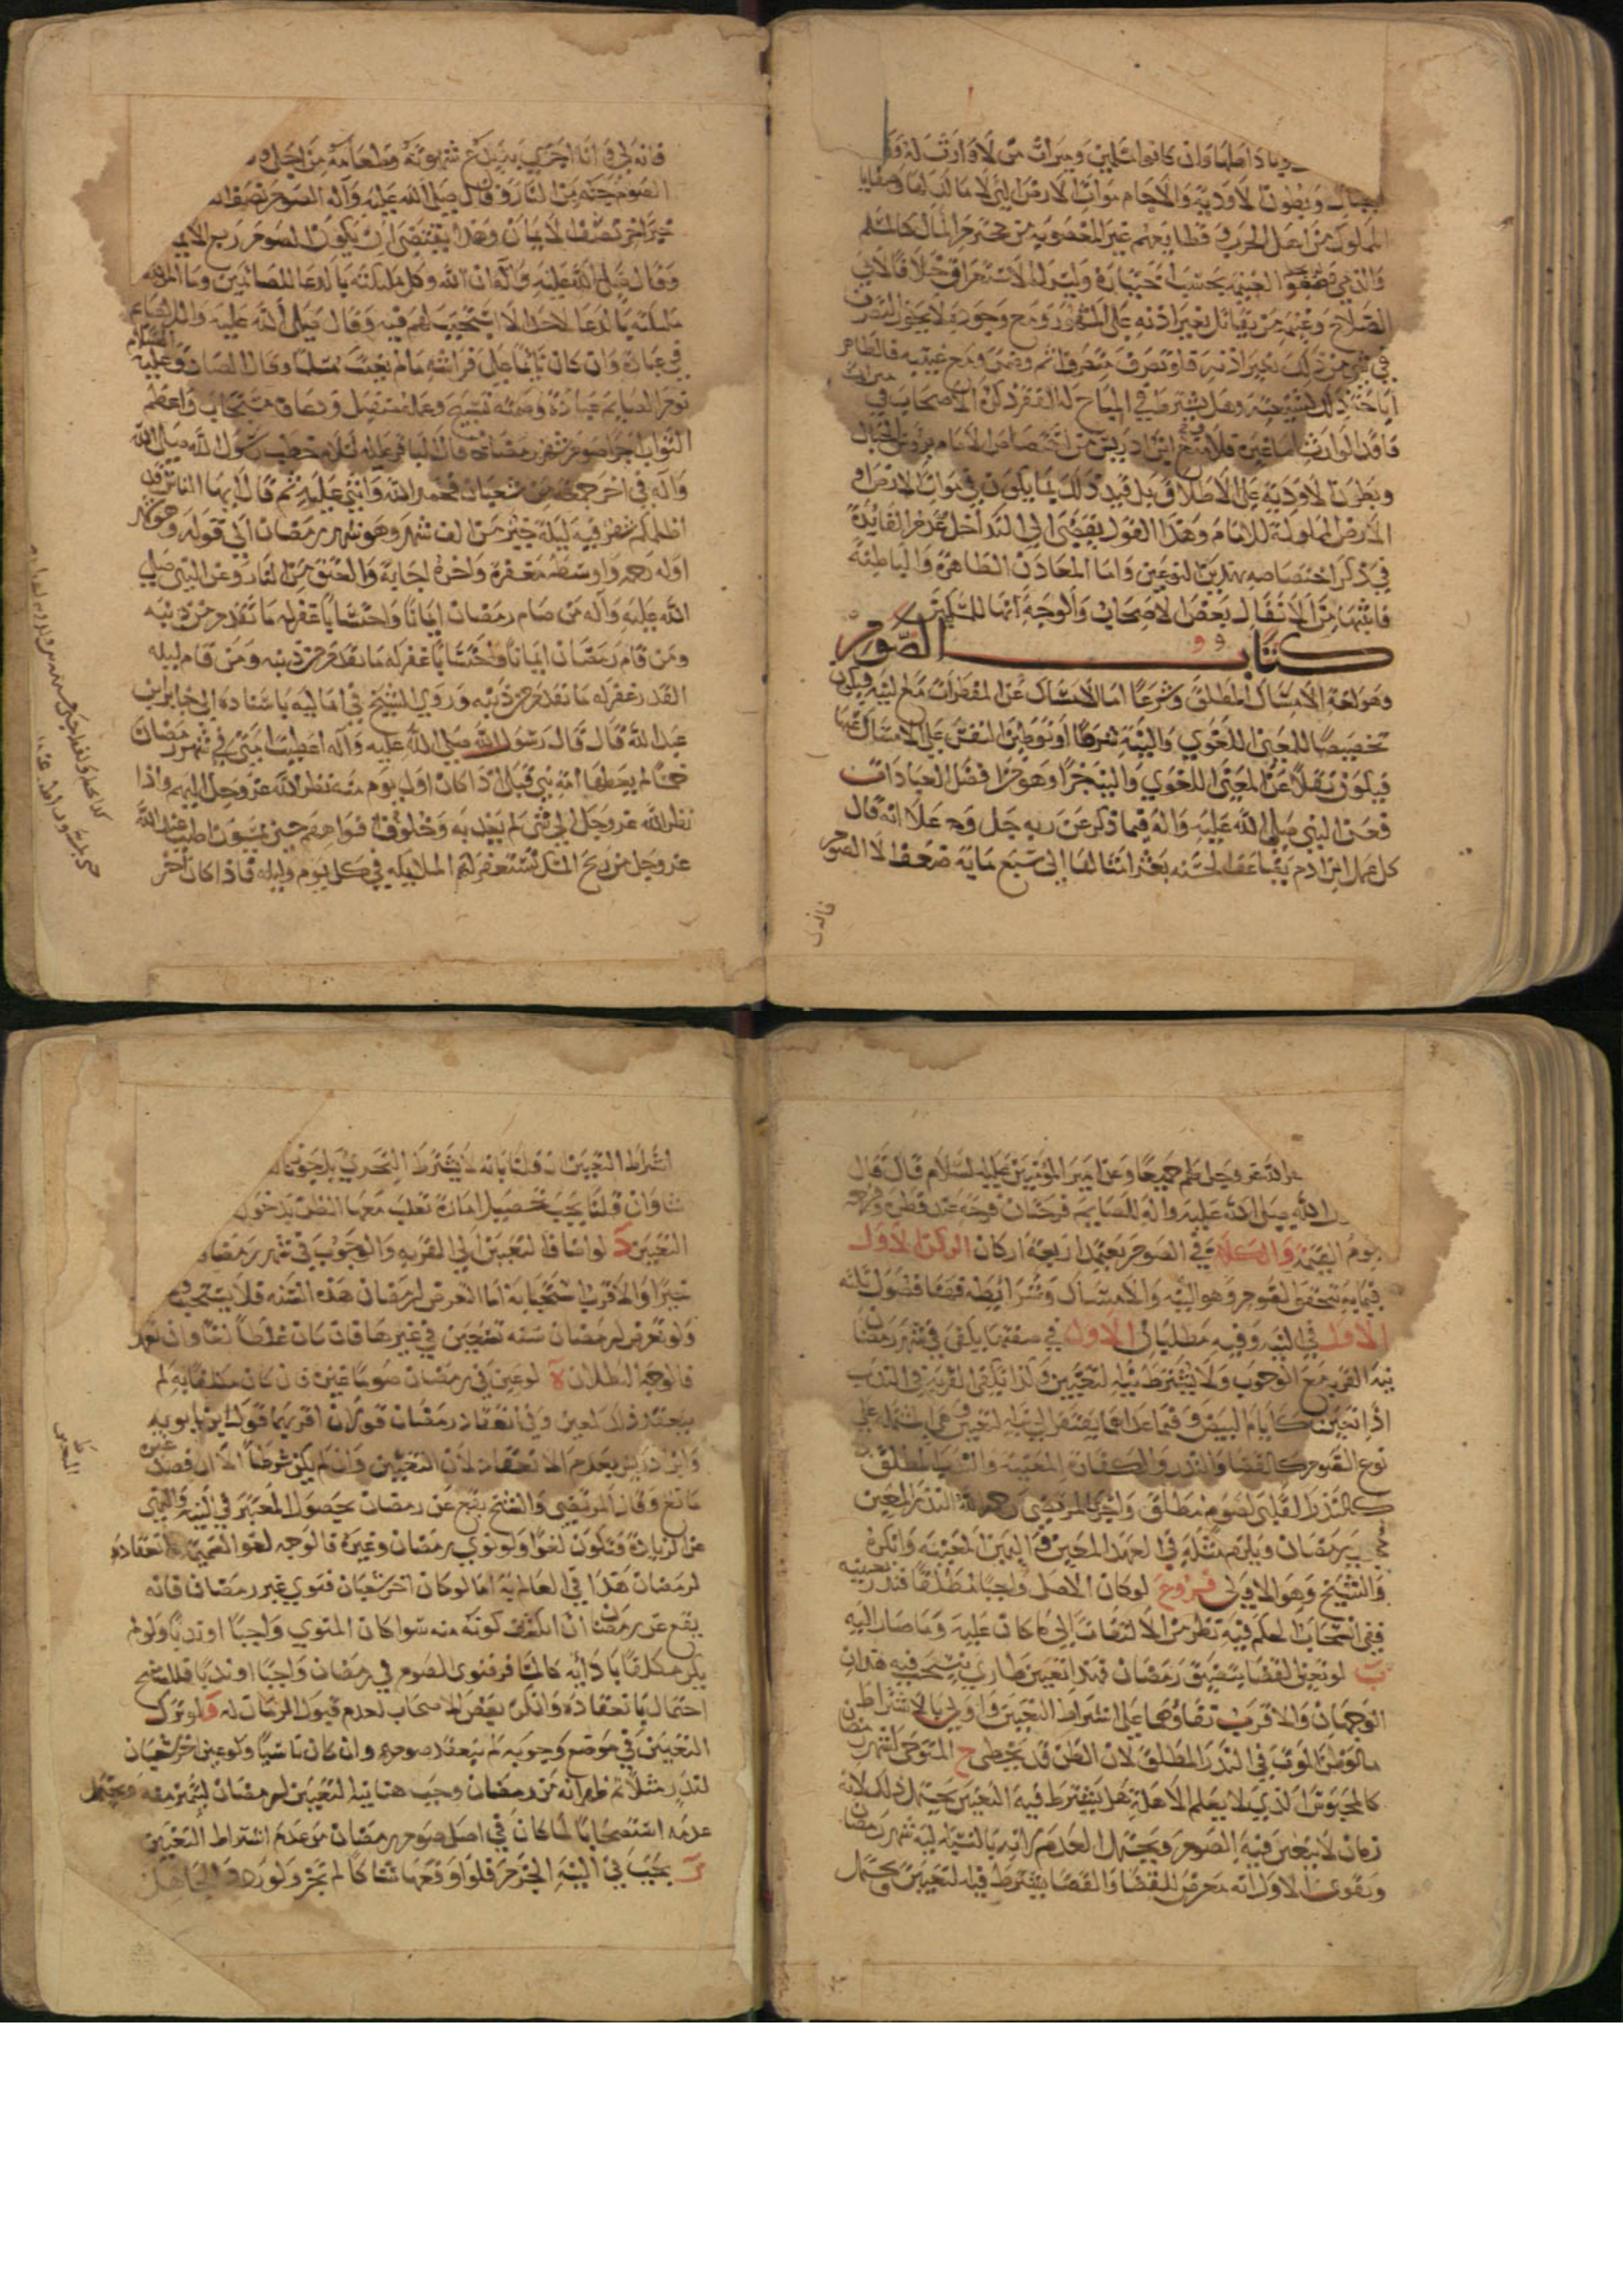 باد اهلها وان كانوا مسلمين وميراث من لا وارث له
الجبال وبطون الاودية والاجام موات الارض التي لا مالك لها وصفايا
الملوك من اهل الحرب وقطايعهم غير المغصوبة من محترم المال كالمسلم
الغنيمة بحسب اختياره وليس له الاستغراق خلافا لابي
الصلاح وغنيمة من يقاتل بغير اذنه على المشهور ومع وجوده لا يجوز التصرف
في شي من ذلك بغير اذنه فلو تصرف متصرف اثم وضمن ومع غيبته فالظاهر
اباحة ذلك لشيعته وهل يشترط في المباح له الفقر ذكره الاصحاب في ميراث
فاقد الوارث اما غيره فلا ومنع ابن ادريس من اختصاص الامام برؤس الجبال
وبطون الاودية على الاطلاق بل قيد ذلك بما يكون في موات الارض او
الارض المملوكة للامام وهذا القول يفضي الى التداخل وعدم الفائدة
في ذكر اختصاصه بهذين النوعين واما المعادن الظاهرة والباطنة
فاثبتها من الانفال بعض الاصحاب والوجه انها للمسلمين
كتاب الصوم
وهو لغة الامساك المطلق وشرعا اما الامساك عن المفطرات مع النية فيكون
تخصيصا للمعنى اللغوي والنية شرطا او توطين النفس على الامساك عنها
فيكون نقلا عن المعنى اللغوي والنية جزا وهو من افضل العبادات
فعن النبي صلى الله عليه واله فيما ذكر عن ربه جل وعلا انه قال
كل عمل ابن ادم يضاعف الحسنه بعشر امثالها الى سبع ماية ضعف الا الصوم
فانه لي
فانه لي وانا اجزي به يدع شهوته وطعامه من اجلي و
الصوم جنة من النار وقال صلى الله عليه وآله الصوم نصف
خبر اخر نصف الايمان وهذا يقتضي ان يكون الصوم ربع الايمان
وقال صلى الله عليه وآله ان الله وكل ملئكته بالدعا للصائمين وما امر
ملئكته بالدعا لاحد الا استجيب لهم فيه وقال صلى الله عليه واله الصايم
في عبادة وان كان نائما على فراشه ما لم يغتب مسلما وقال الصادق عليه السلام
نوم الصايم عبادة وصمته تسبيح وعمله متقبل ودعاؤه مستجاب واعظم
الثواب اجرا صوم شهر رمضان قال الباقر عليه السلام خطب رسول الله صلى الله
وآله في اخر جمعة من شعبان فحمد الله واثنى عليه ثم قال ايها الناس قد
اظلكم شهر فيه ليلة خير من الف شهر وهو شهر رمضان الى قوله وهو شهر
اوله رحمة واوسطه مغفرة واخره اجابة والعتق من النار وعن النبي صلى
الله عليه وآله من صام رمضان ايمانا واحتسابا غفر له ما تقدم من ذنبه
ومن قام رمضان ايمانا واحتسابا غفر له ما تقدم من ذنبه ومن قام ليله
القدر غفر له ما تقدم من ذنبه وروي الشيخ في اماليه باسناده الى جابر بن
عبد الله قال قال رسول الله صلى الله عليه وآله اعطيت امتي في شهر رمضان
خمسا لم يعطها امة نبي قبلي اذا كان اول يوم منه نظر الله عز وجل اليهم واذا
نظر الله عز وجل الى شي لم يعذبه وخلوف افواههم حين يمسون اطيب عند الله
عز وجل من ريح المسك تستغفر لهم الملايكه في كل يوم وليله فاذا كان اخر
الله عز وجل لهم جميعا وعن امير المؤمنين عليه السلام قال قال
الله صلى الله عليه واله للصايم فرحتان فرحة عند فطره وفرحة
يوم القيمة والكلام في الصوم يعتمد اربعة اركان الركن الاول
فيما به يتحقق الصوم وهو النية والامساك وشرائطه فهنا فصول ثلثه
الاول في النية وفيه مطلبان الاول في صفتها يكفي في شهر رمضان
نية القربة مع الوجوب ولا يشترط نية التعيين وكذا يكفي القربة في الندب
اذا تعين كايام البيض وفيما عداهما يفتقر الى نية التعيين وهي المشتملة على
نوع الصوم كالقضا والنذر والكفارة المعينة والنذر المطلق
كالنذر لصوم مطلق واجرى المرتضى رحمه الله النذر المعين
مجرى رمضان ويلزم مثله في العهد المعين واليمين المعينه وانكره
والشيخ وهو الاولى فروع لوكان الاصل واجبا مطلقا فنذر تعيينه
ففي انسحاب الحكم فيه نظر من الالتفات الى ما كان عليه وما صار اليه
ب لو تعين القضا بتضيق رمضان فهذا تعيين طاري ينسحب فيه هذان
الوجهان والاقرب بقاؤهما على اشتراط التعيين واولى بالاشتراط من
ما لو ظن الموت في النذر المطلق لان الظن قد يخطي ج المتوخى لشهر رمضان
كالمحبوس الذي لا يعلم الاهلة هل يشترط فيه التعيين يحتمل ذلك لانه
زمان لا يتعين فيه الصوم ويحتمل العدم لانه بالنسبة اليه شهر رمضان
ويقوى الاول انه معرض للقضا والقضا يشترط فيه التعيين ويحتمل
اشتراط التعيين ان قلنا بانه لا يشترط التحري بل يجوز
شا وان قلنا يجب تحصيل امارة تغلب معها الظن بدخول
التعيين د لو اضاف التعيين الى القربة والوجوب في شهر رمضان
خيرا والاقرب استحبابه اما التعرض لرمضان هذه السنه فلا يستحب
ولو تعرض لرمضان سنه تعيين في غيرها فان كان غلطا لغا وان تعمد
فالوجه البطلان ه لو عين في رمضان صوما غيره فان كان مكلفا به لم
ينعقد ذلك المعين وفي انعقاد رمضان قولان اقربهما قول ابن بابويه
وابن ادريس بعدم الانعقاد لان التعيين وان لم يكن شرطا الا ان قصد غيره
مانع وقال المرتضى والشيخ يقع عن رمضان لحصول المعتبر في النية والنهي
عن الزيادة فتكون لغوا ولو نوى رمضان وغيره فالوجه لغو الضميمة وانعقاده
لرمضان هذا في العالم به اما لو كان اخر شعبان فنوى غير رمضان فانه
يقع عن رمضان ان انكشف كونه منه سوا كان المنوي واجبا او ندبا ولو لم
يكن مكلفا بادائه كالمسافر فنوى الصوم في رمضان واجبا او ندبا فلا يصح
احتمال بانعقاده وانكره بعض الاصحاب لعدم قبول الزمان له ولو ترك
التعيين في موضع وجوبه لم ينعقد صومه وان كان ناسيا ولو عين اخر شعبان
لنذر مثلا ثم ظهر انه من رمضان وجب هنا نية التعيين لرمضان ليتميز منه ويحتمل
عدمه استصحابا لما كان في اصل صوم رمضان من عدم اشتراط التعيين
ز يجب في النية الجزم فلو اوقعها شاكا لم يجز ولو ردد الجاهل